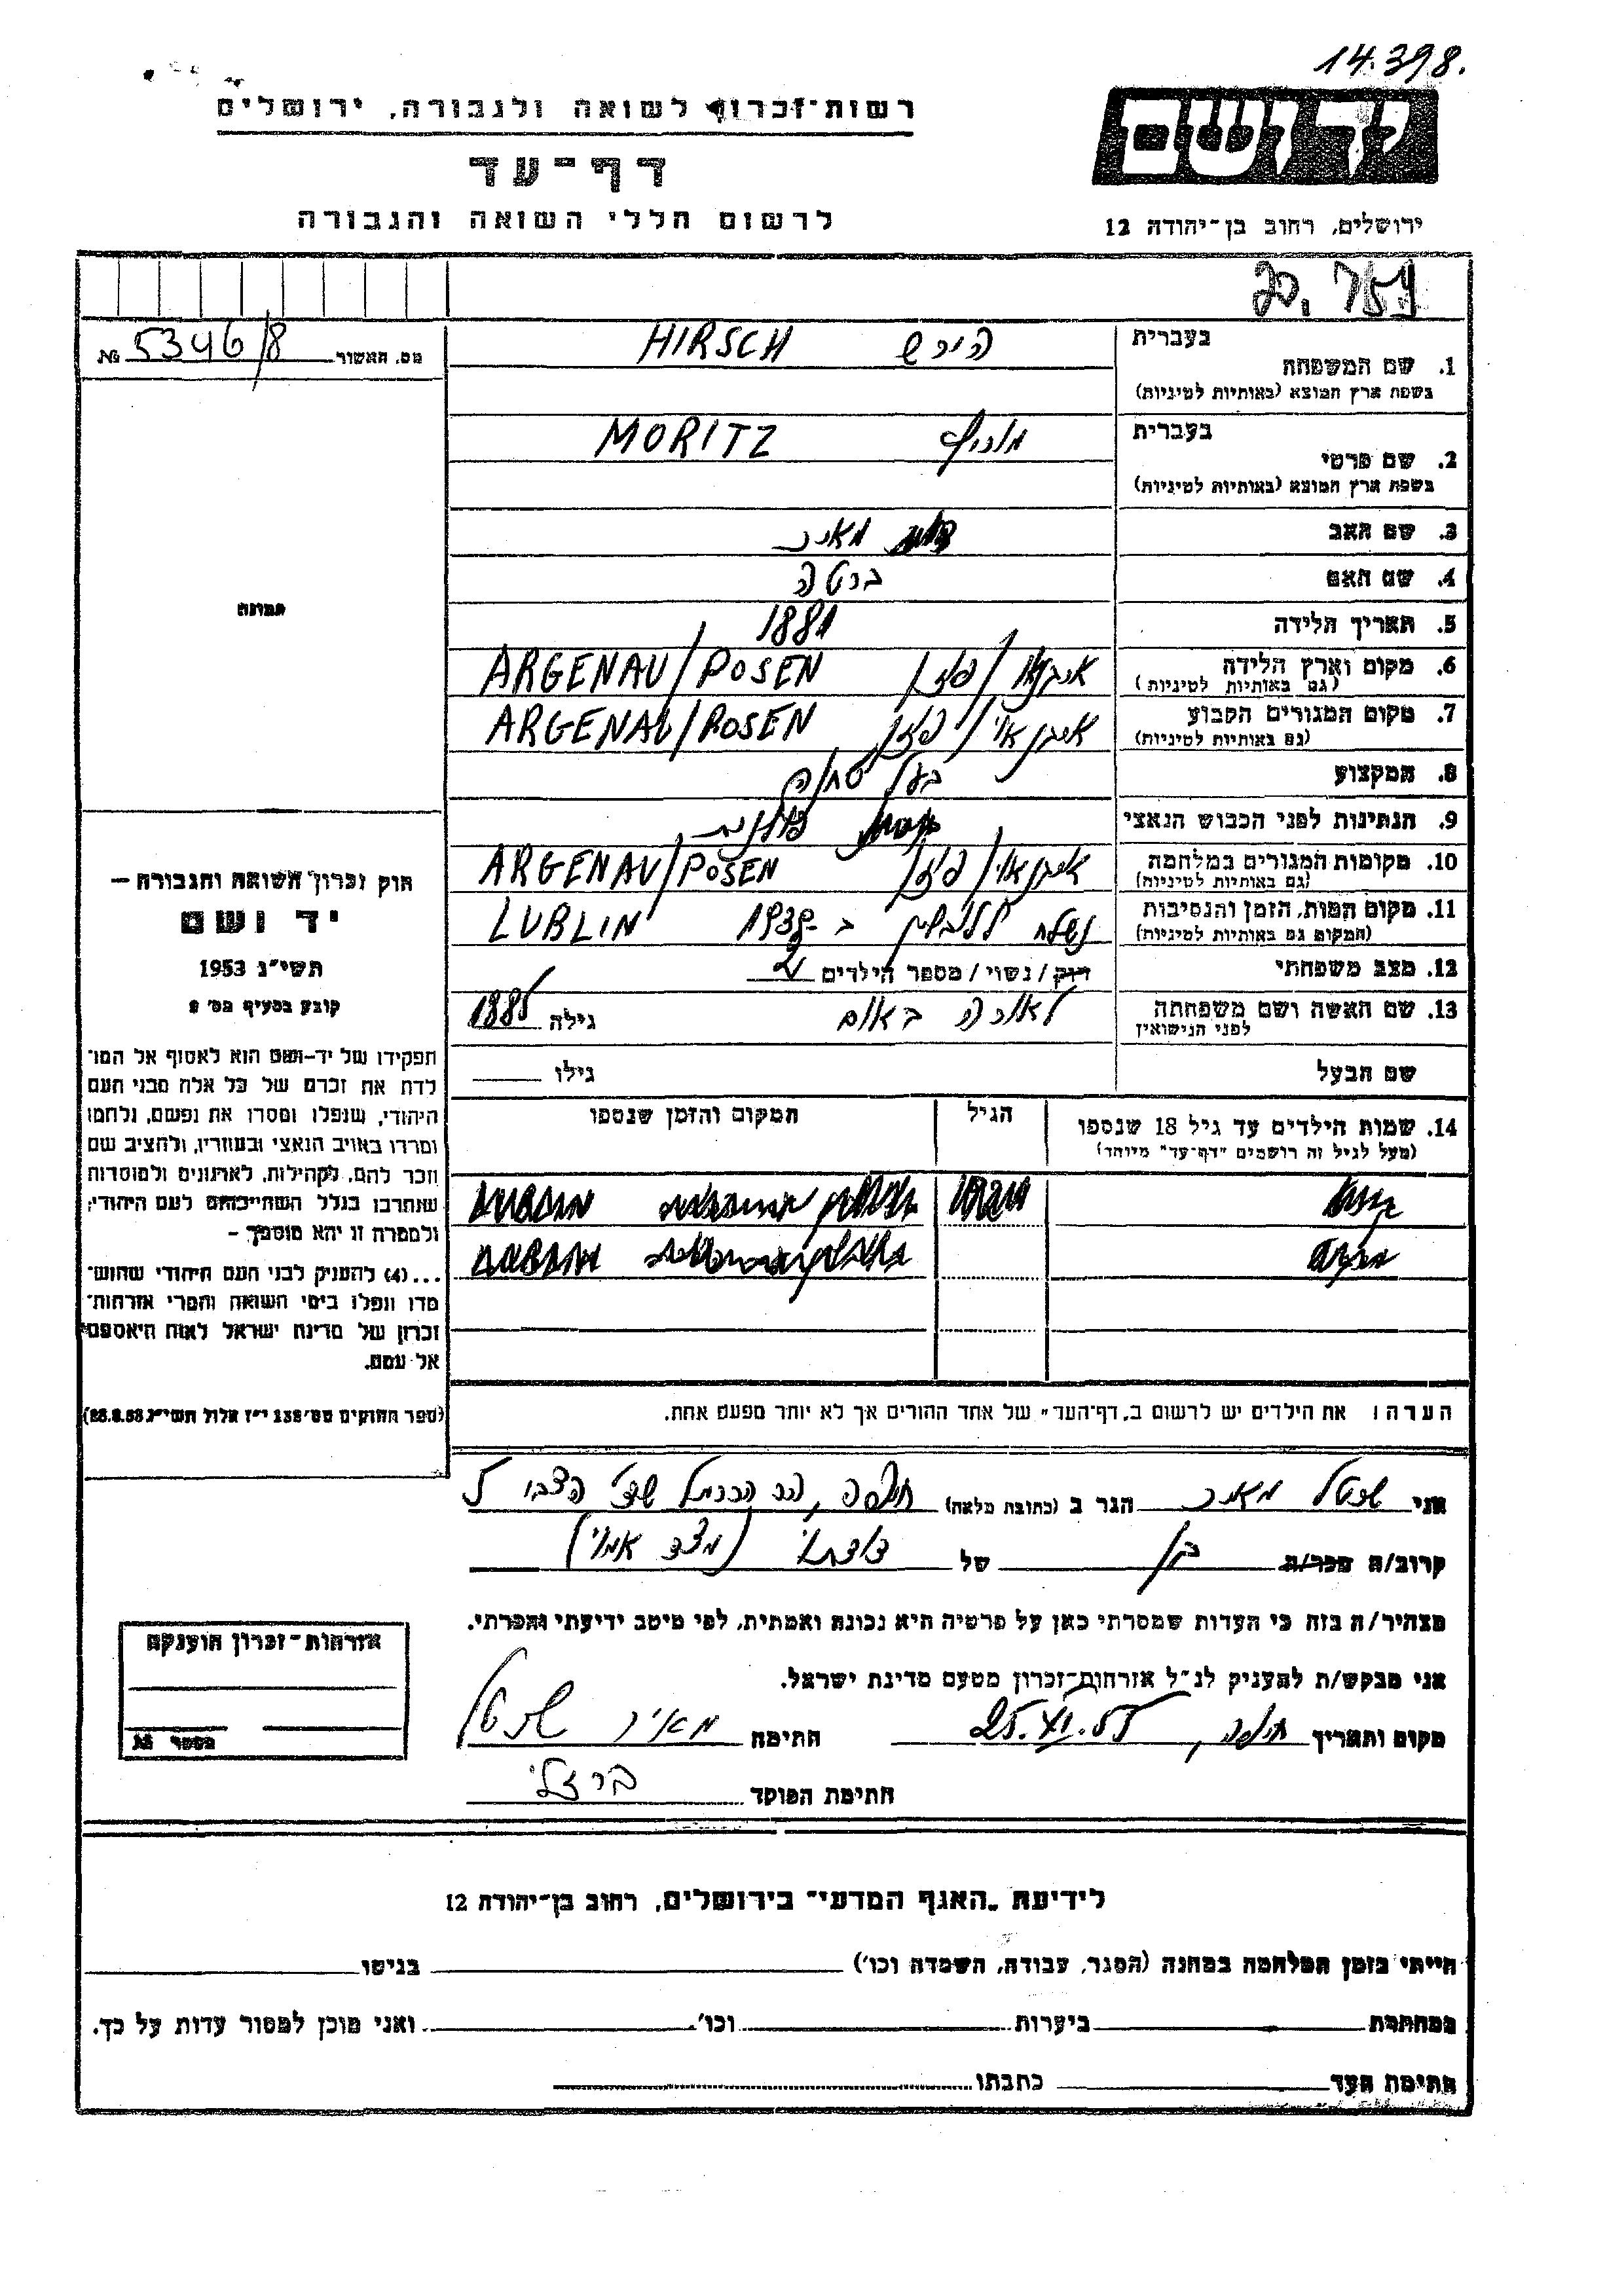 14.398.
רשות־זכרון לשואה ולגבורה, ירושלים
ידושם
דף־עד
לרשום חללי השואה והגבורה
ירושלים, רחוב בן־יהודה 12
מס. האשור 5346/8 №
בעברית
1. שם המשפחה
בשפת ארץ המוצא (באותיות לטיניות)
הירש HIRSCH
בעברית
2. שם פרטי
בשפת ארץ המוצא (באותיות לטיניות)
מוריץ MORITZ
3. שם האב מאיר
4. שם האם ברטה
5. תאריך הלידה 1881
6. מקום וארץ הלידה ארגנאו/פוזן ARGENAU/POSEN
(גם באותיות לטיניות)
7. מקום המגורים הקבוע ארגנאו/פוזן ARGENAU/POSEN
(גם באותיות לטיניות)
8. המקצוע בעל טחנה
9. הנתינות לפני הכבוש הנאצי
10. מקומות המגורים במלחמה ארגנאו/פוזן ARGENAU/POSEN
(גם באותיות לטיניות)
11. מקום המות, הזמן והנסיבות נשלח ללובלין ב-1939 LUBLIN
(המקום גם באותיות לטיניות)
12. מצב משפחתי רווק/נשוי/מספר הילדים 2
13. שם האשה ושם משפחתה לפני הנישואין באום גילה 1885
שם הבעל גילו
14. שמות הילדים עד גיל 18 שנספו הגיל המקום והזמן שנספו
(מעל לגיל זה רושמים "דף־עד" מיוחד)
הערה: את הילדים יש לרשום ב"דף־העד" של אחד ההורים אך לא יותר מפעם אחת.
תמונה
חוק זכרון השואה והגבורה —
יד ושם
תשי״ג 1953
קובע בסעיף מס׳ 2
תפקידו של יד-ושם הוא לאסוף אל המו־
לדת את זכרם של כל אלה מבני העם
היהודי, שנפלו ומסרו את נפשם, נלחמו
ומרדו באויב הנאצי ובעוזריו, ולהציב שם
וזכר להם, לקהילות, לארגונים ולמוסדות
שנחרבו בגלל השתייכותם לעם היהודי;
ולמטרה זו יהא מוסמך —
...(4) להעניק לבני העם היהודי שהוש־
מדו ונפלו בימי השואה והמרי אזרחות־
זכרון של מדינת ישראל לאות היאספם
אל עמם.
(ספר החוקים מס׳ 132 י״ז אלול תשי״ג 28.8.53)
אני מאיר הגר ב (כתובת מלאה) חיפה, הר הכרמל
קרוב/ה מכר/ה בן של דודתי (מצד אמי)
מצהיר/ה בזה כי העדות שמסרתי כאן על פרטיה היא נכונה ואמתית, לפי מיטב ידיעתי והכרתי.
אני מבקש/ת להעניק לנ״ל אזרחות־זכרון מטעם מדינת ישראל.
מקום ותאריך חיפה, 25.XI.55 חתימה מאיר
חתימת הפוקד ברזלי
אזרחות־זכרון הוענקה
מספר №
לידיעת "האגף המדעי" בירושלים, רחוב בן־יהודה 12
הייתי בזמן המלחמה במחנה (הסגר, עבודה, השמדה וכו׳) בגיטו
במחתרת ביערות וכו׳ ואני מוכן למסור עדות על כך.
חתימת העד כתבתו